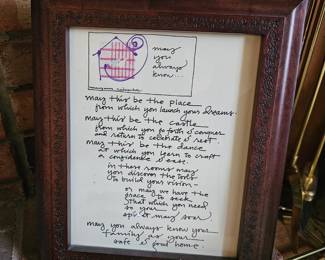 may
you
always
know...
may this be the place
from which you launch your dreams
may this be the castle
from which you go forth & conquer
and return to celebrate & rest
may this be the dance
to which you yearn to craft
a confidence & ease.
in these rooms may
you discover the tools
to build your vision —
or may we have the
grace to seek
that which you need
so your
spirit may soar
may you always know your
family is your
safe & soul home.